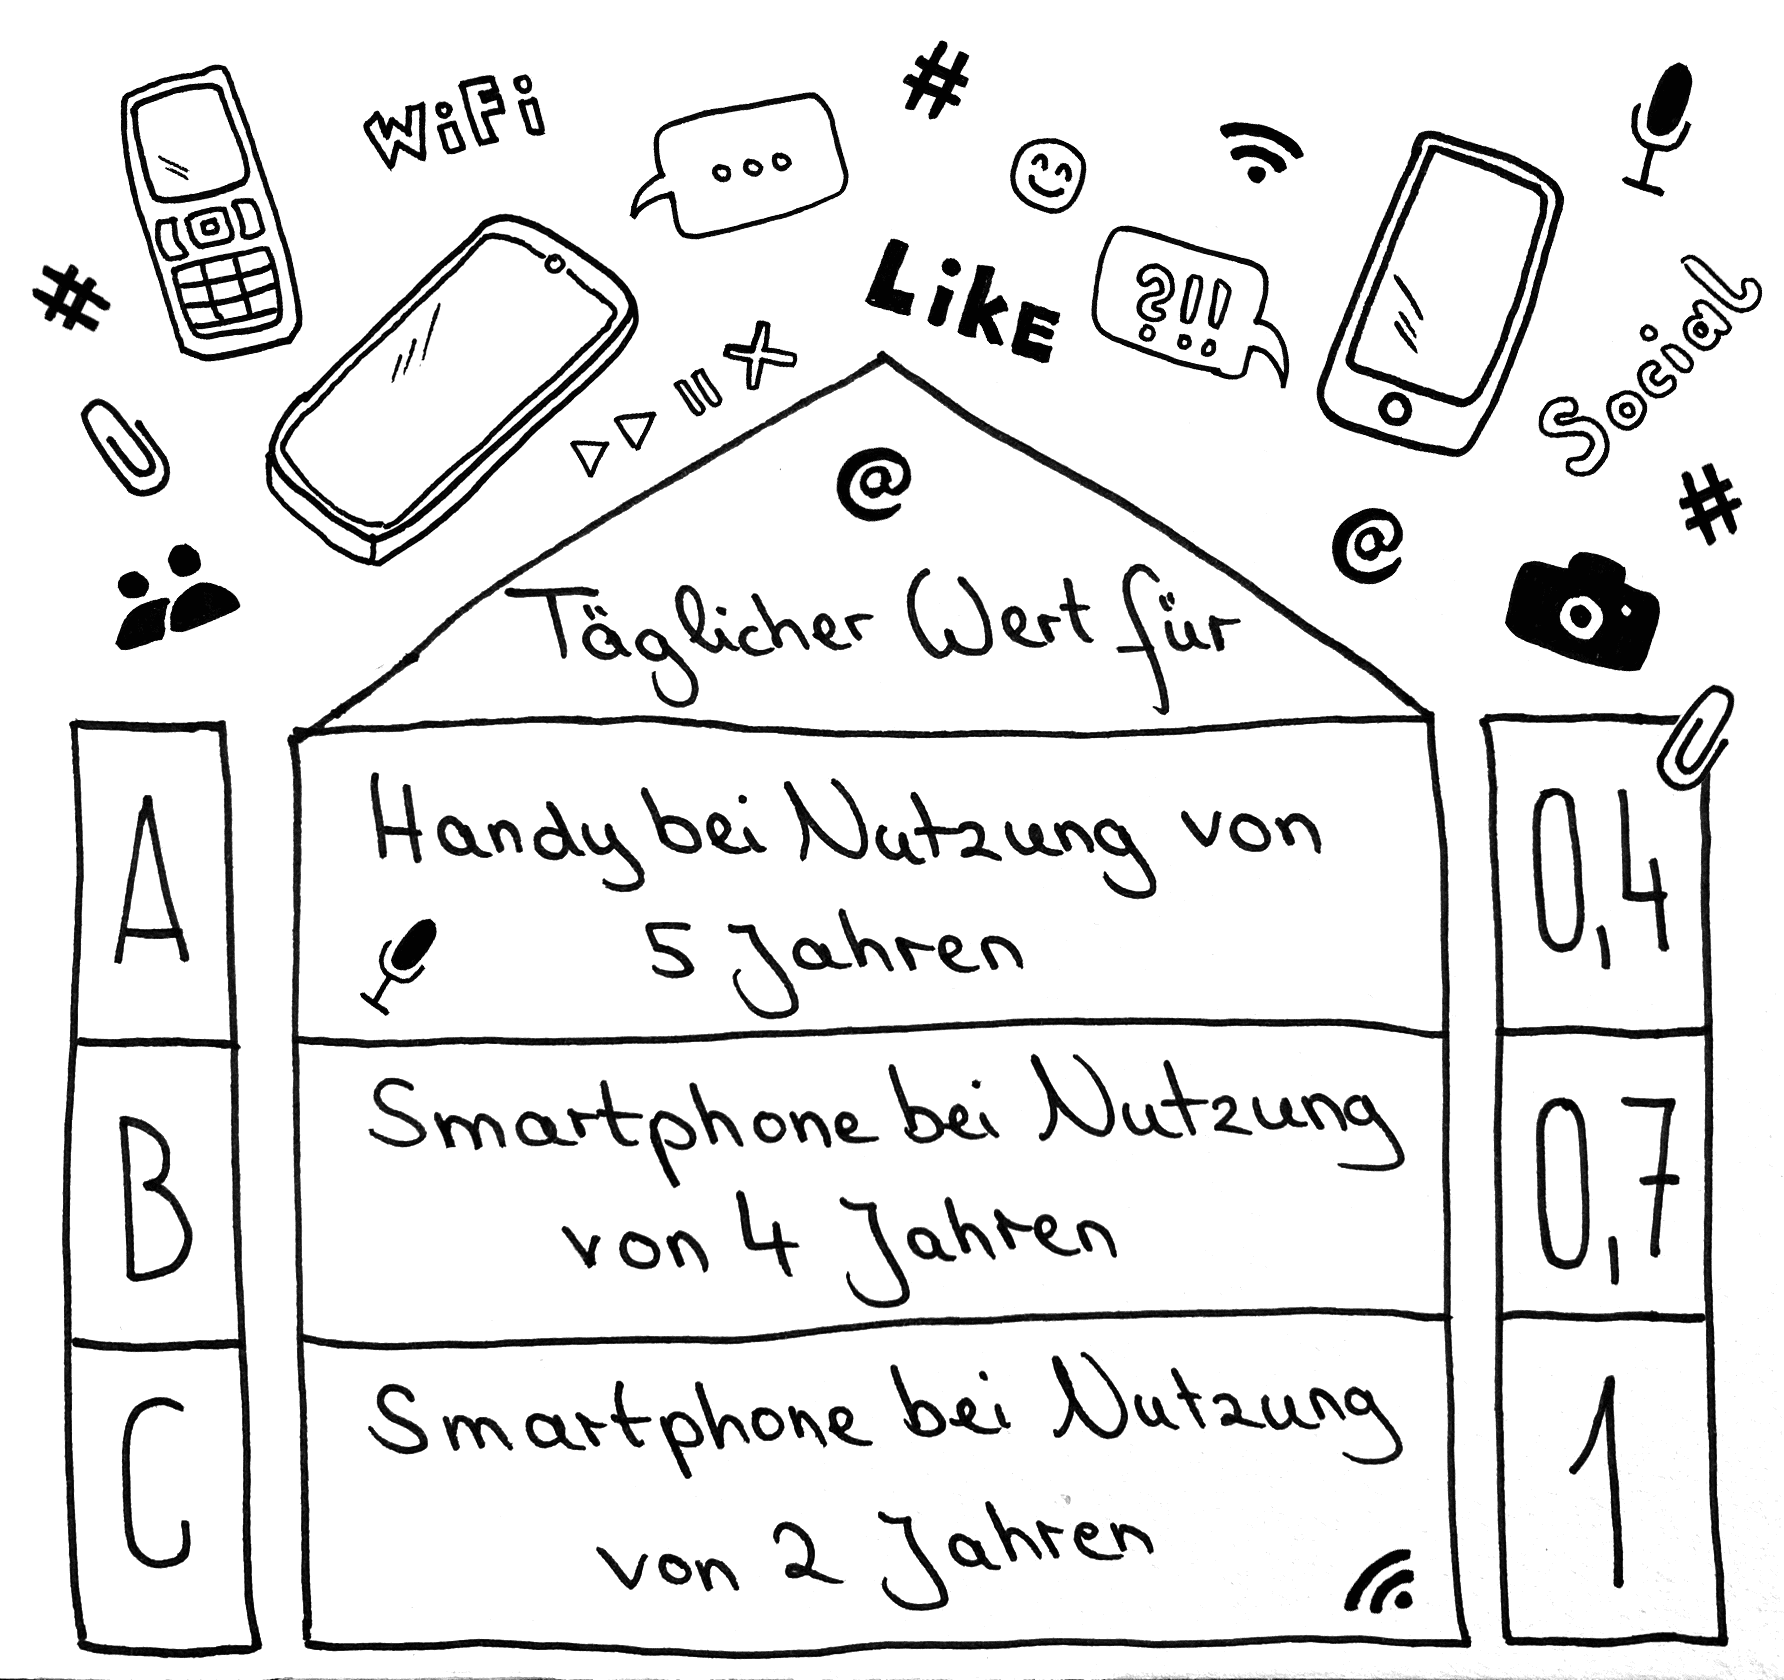 #
WiFi
...
Like
?!!
Social
#
#
@
@
Täglicher Wert für
A
Handy bei Nutzung von
5 Jahren
0,4
B
Smartphone bei Nutzung
von 4 Jahren
0,7
C
Smartphone bei Nutzung
von 2 Jahren
1